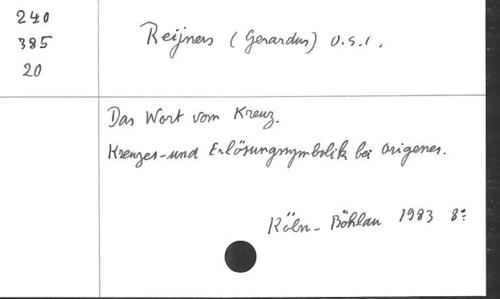 240
385
20
Reijners (Gerardus) O.S.C.
Das Wort vom Kreuz.
Kreuzes- und Erlösungssymbolik bei Origenes.
Köln - Böhlau 1983 8º